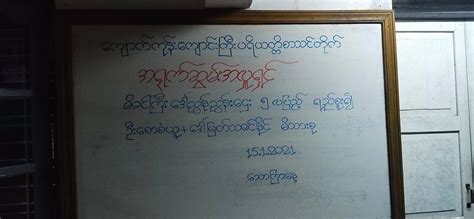 ကျောက်ကုန်းကျောင်းကြီးပရိယတ္တိစာသင်တိုက်
အရုဏ်ဆွမ်းအလှူရှင်
မိခင်ကြီး ဒေါ်ညွန့်ညွန့်ဌေး ၅ လပြည့် ရည်စူး၍
ဦးစောစံယူ + ဒေါ်မြတ်သဇင်နိုင် မိသားစု
15.1.2021
သောကြာနေ့